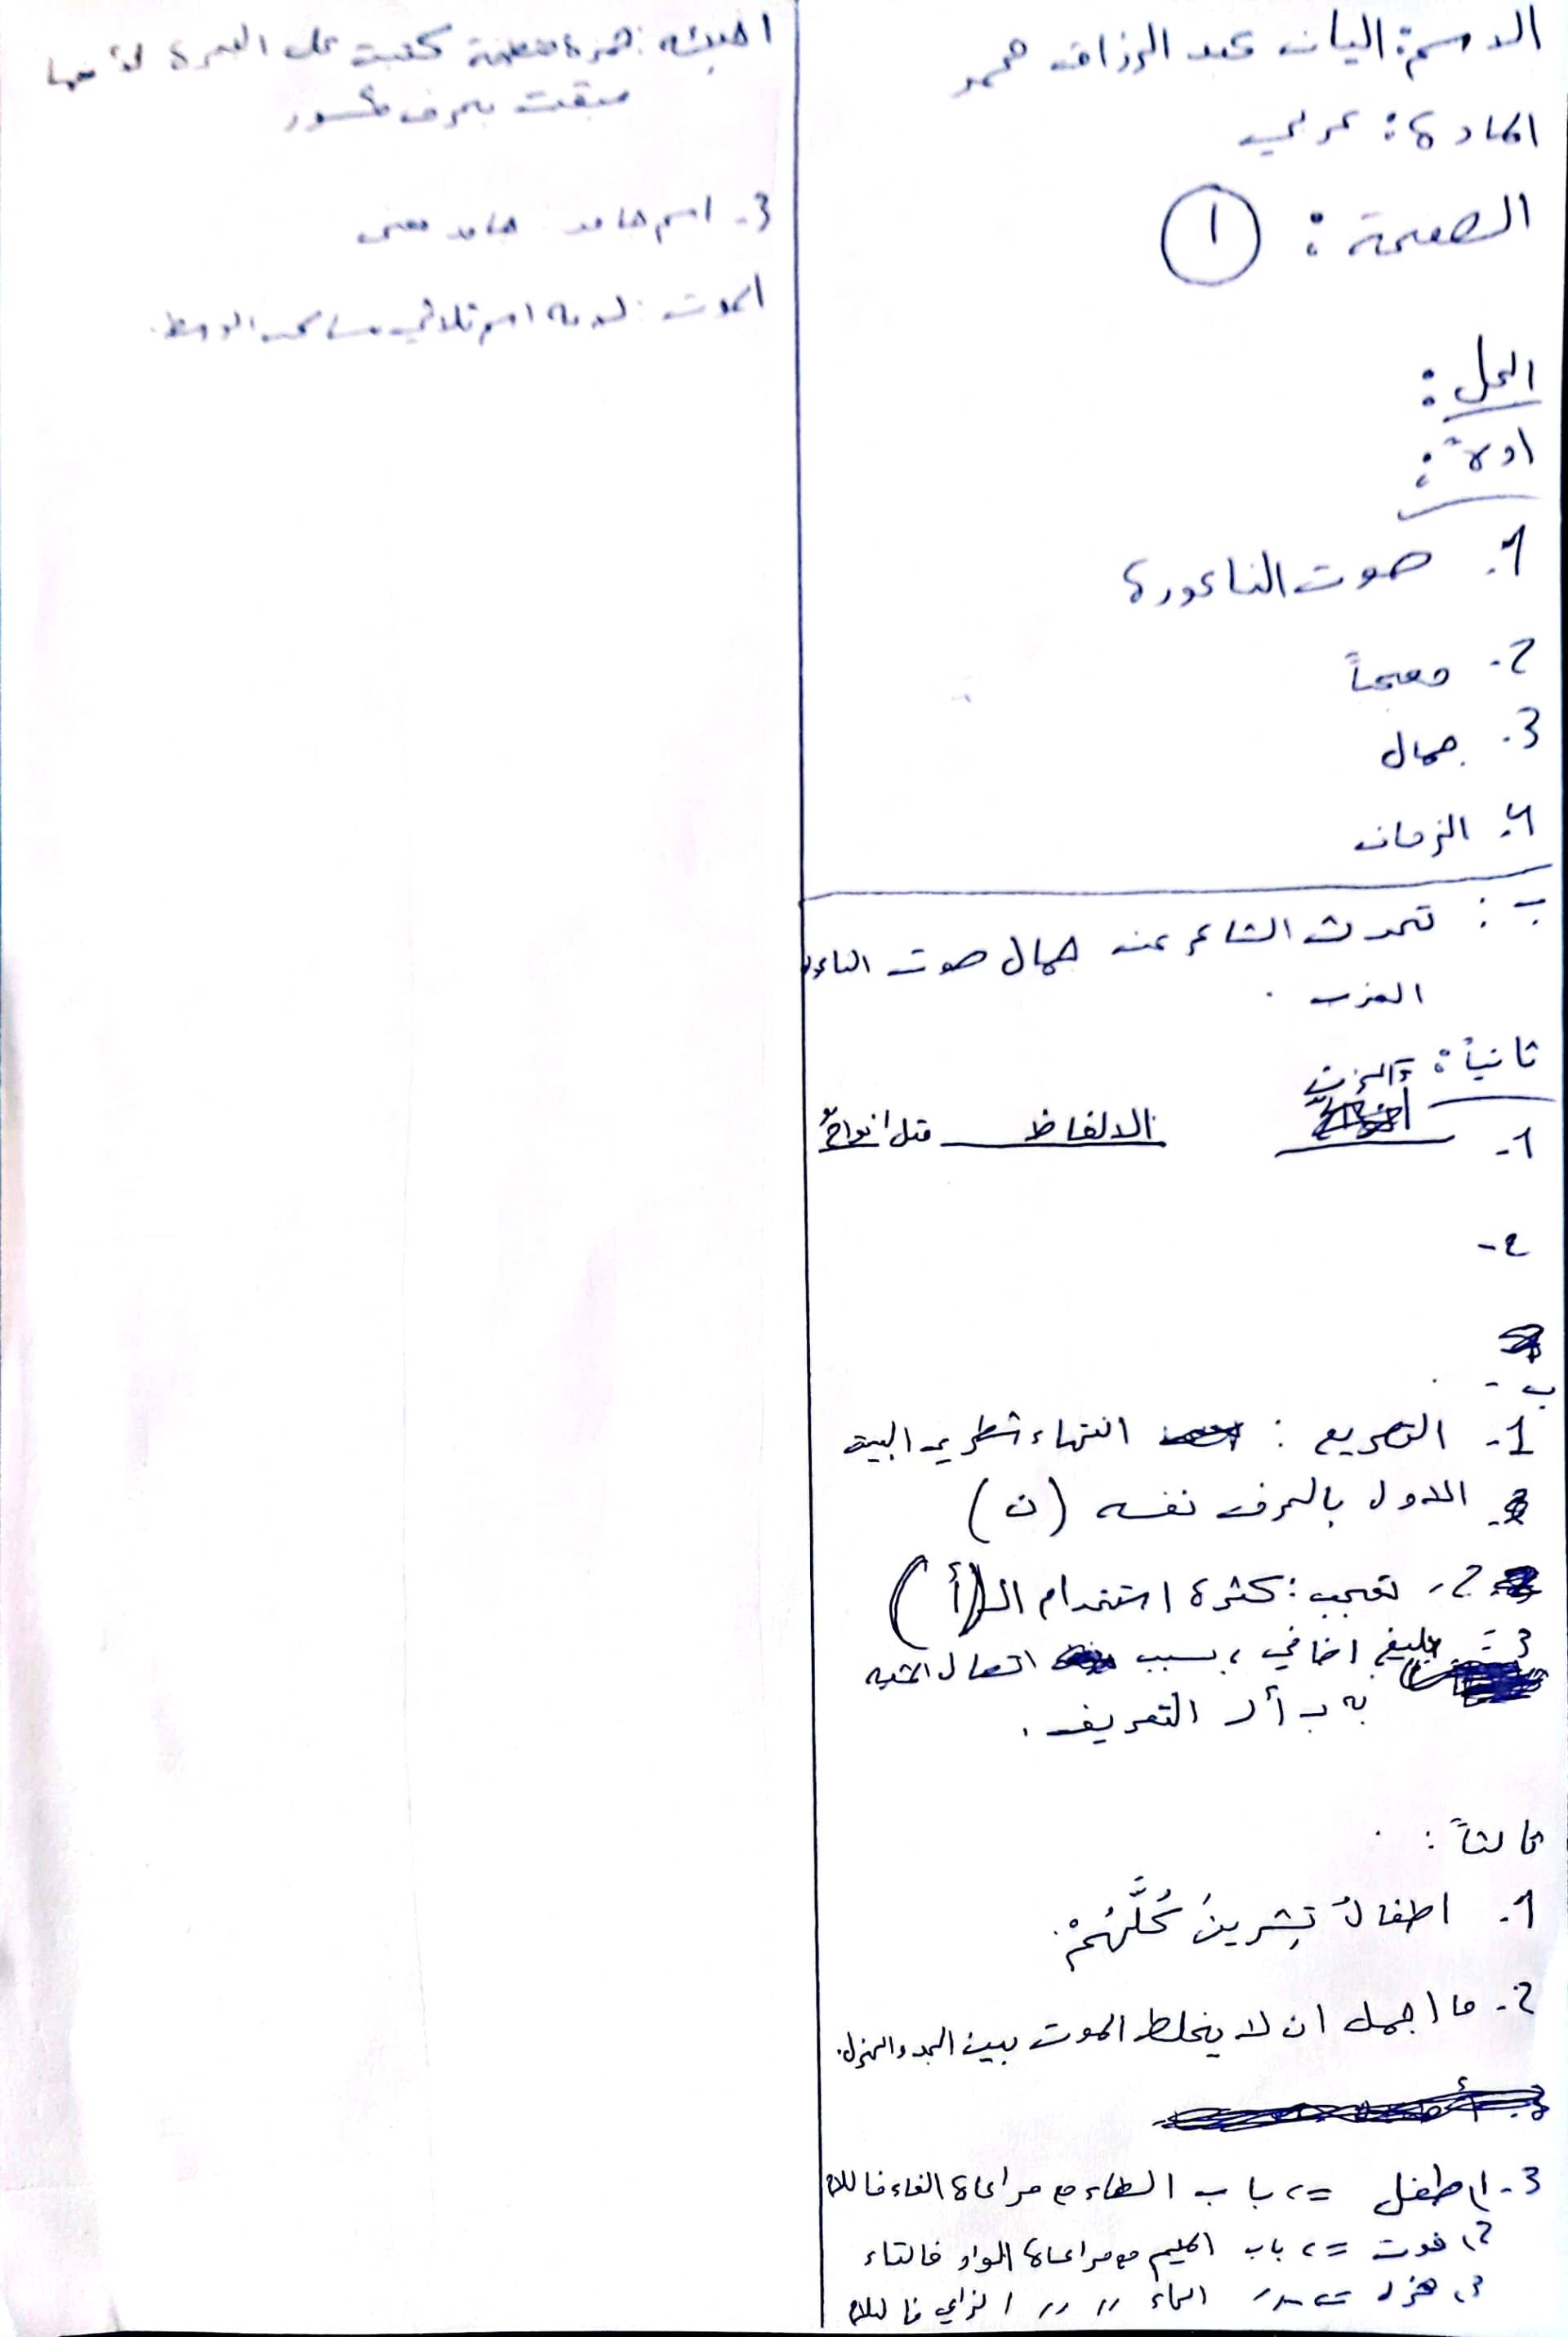 الاسم: اليان عبد الرزاق محمد
المادة: عربي
الصفحة: ١
الحل:
اولاً:
1. صوت الناعورة
2- معجباً
3. جمال
4. الزمان
ب: تحدث الشاعر عن جمال صوت الناعورة
العذب.
ثانياً: الحزن
1- الالفاظ مثل انواحٌ
2-
ب-
1- التصريع: انتهاء شطري البيت
الاول بالحرف نفسه (ن)
2- تعجب: كثرة استخدام الـ (أ)
3- بليغ اضافي، بسبب اتصال المشبه
به بـ أل التعريف.
ثالثاً:
1. اطفالُ تِشرينَ كُلَّهُمْ.
2- ما اجمل ان لا يخلط الموت بين الجد والهزل.
3- 1) طفل => باب الطاء مع مراعاة الفاء فاللام
2) موت => باب الميم مع مراعاة الواو فالتاء
3) هزل => الهاء // // الزاي فاللام
همزة متطرفة كتبت على النبرة لأنها
سبقت بحرف مكسور
3- اسم جامد جامد معنى
الموت: لانه اسم ثلاثي ساكن الوسط.